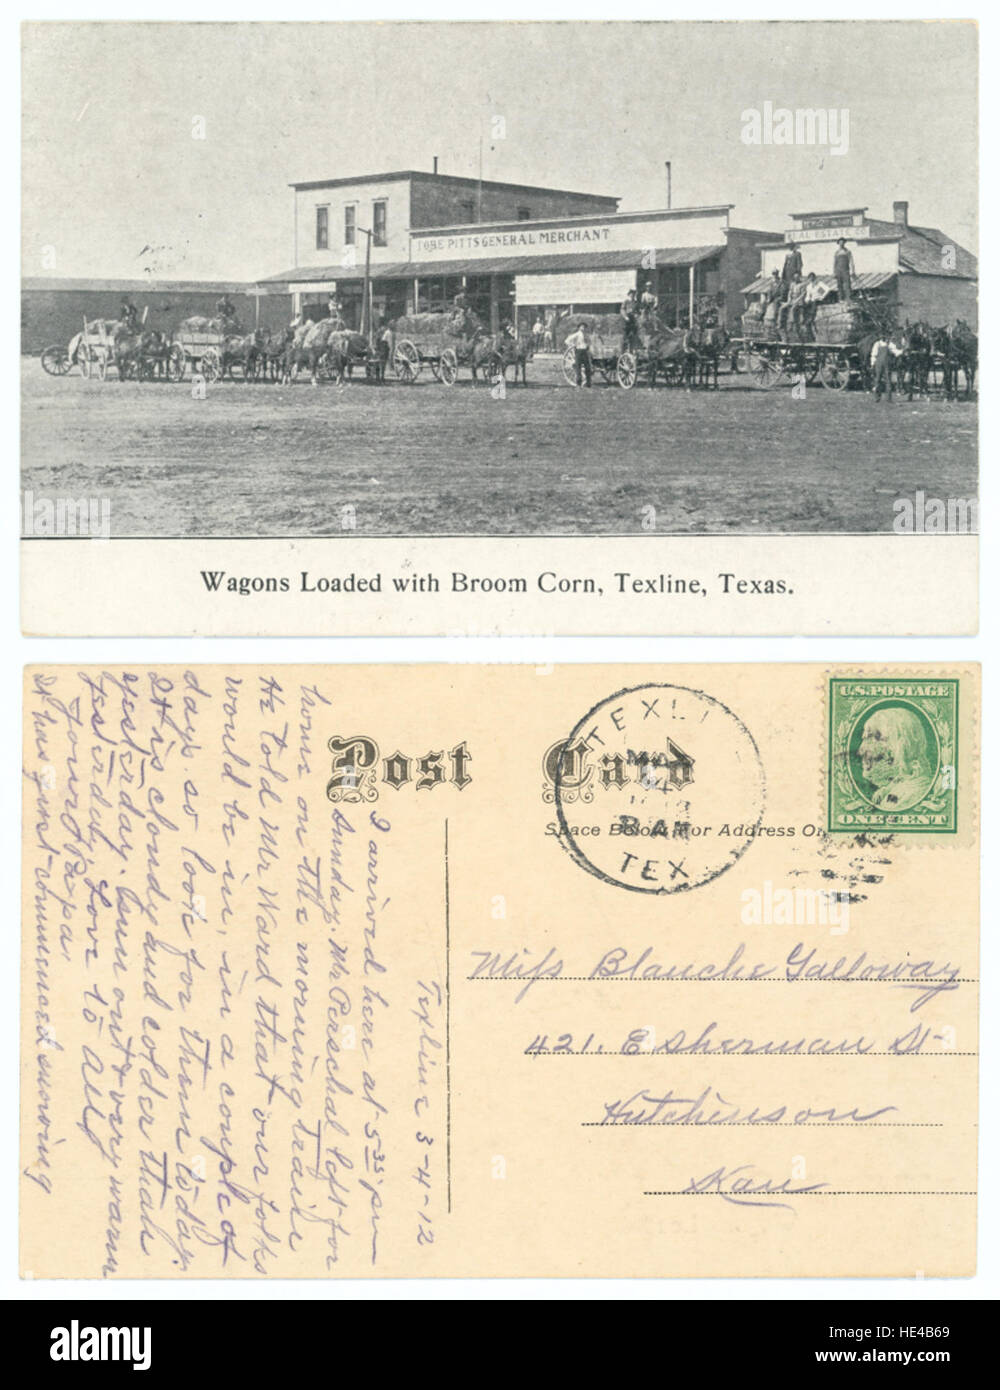 TOBE PITTS GENERAL MERCHANT
REAL ESTATE CO
Wagons Loaded with Broom Corn, Texline, Texas.
Post Card
Space Below For Address On
U.S. POSTAGE
ONE CENT
TEXL
TEX
Miss Blanche Galloway
421. E Sherman St
Hutchinson
Kan
Texline 3-4-12
I arrived here at 5 35 pm
Sunday. Mr Perschal left for
home on the morning train
He told Mr Ward that our folks
would be in, in a couple of
days so look for them today.
It is cloudy and colder than
yesterday. Sun out very warm
yesterday. Love to all
Your Papa,
It has just commenced snowing
alamy
Image ID: HE4B69
www.alamy.com